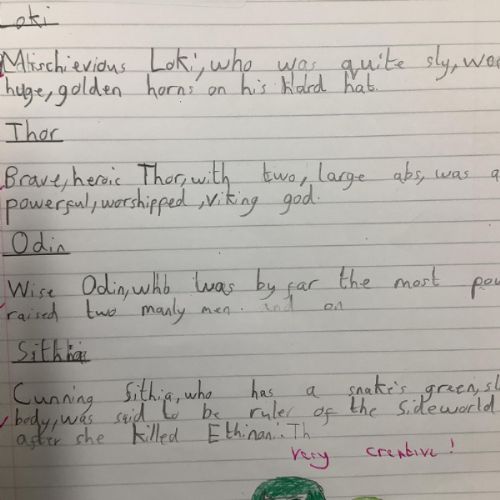 Loki
Mischievious Loki, who was quite sly,
huge, golden horns on his hard hat.
Thor
Brave, heroic Thor, with two, large abs, was a
powerful, worshipped, viking god.
Odin
Wise Odin, who was by far the most
raised two manly men. and on
Sithia
Cunning Sithia, who has a snake's green,
body, was said to be ruler of the sideworld
after she killed Ethinan. Th
very creative!